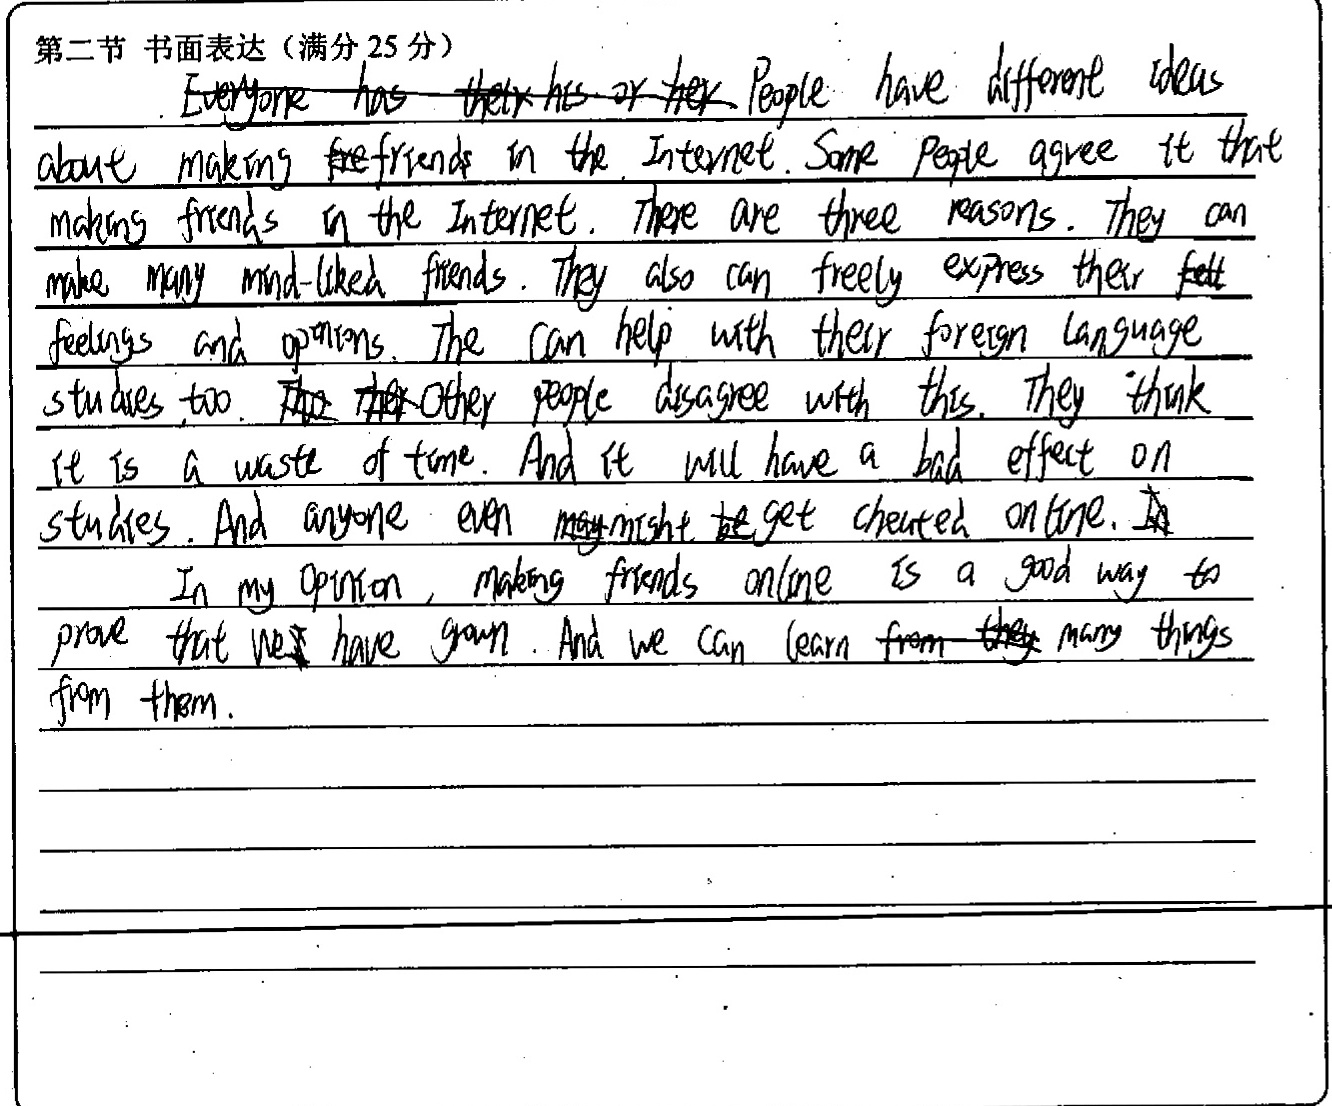 第二节 书面表达（满分 25 分）
Everyone has their his or her People have different ideas
about making fre friends in the Internet. Some people agree it that
making friends in the Internet. There are three reasons. They can
make many mind-liked friends. They also can freely express their felt
feelings and opinions. The can help with their foreign language
studies too. The Ther Other people disagree with this. They think
it is a waste of time. And it will have a bad effect on
studies. And anyone even may might be get cheated online. In
In my opinion, making friends online is a good way to
prove that we have grown. And we can learn from they many things
from them.